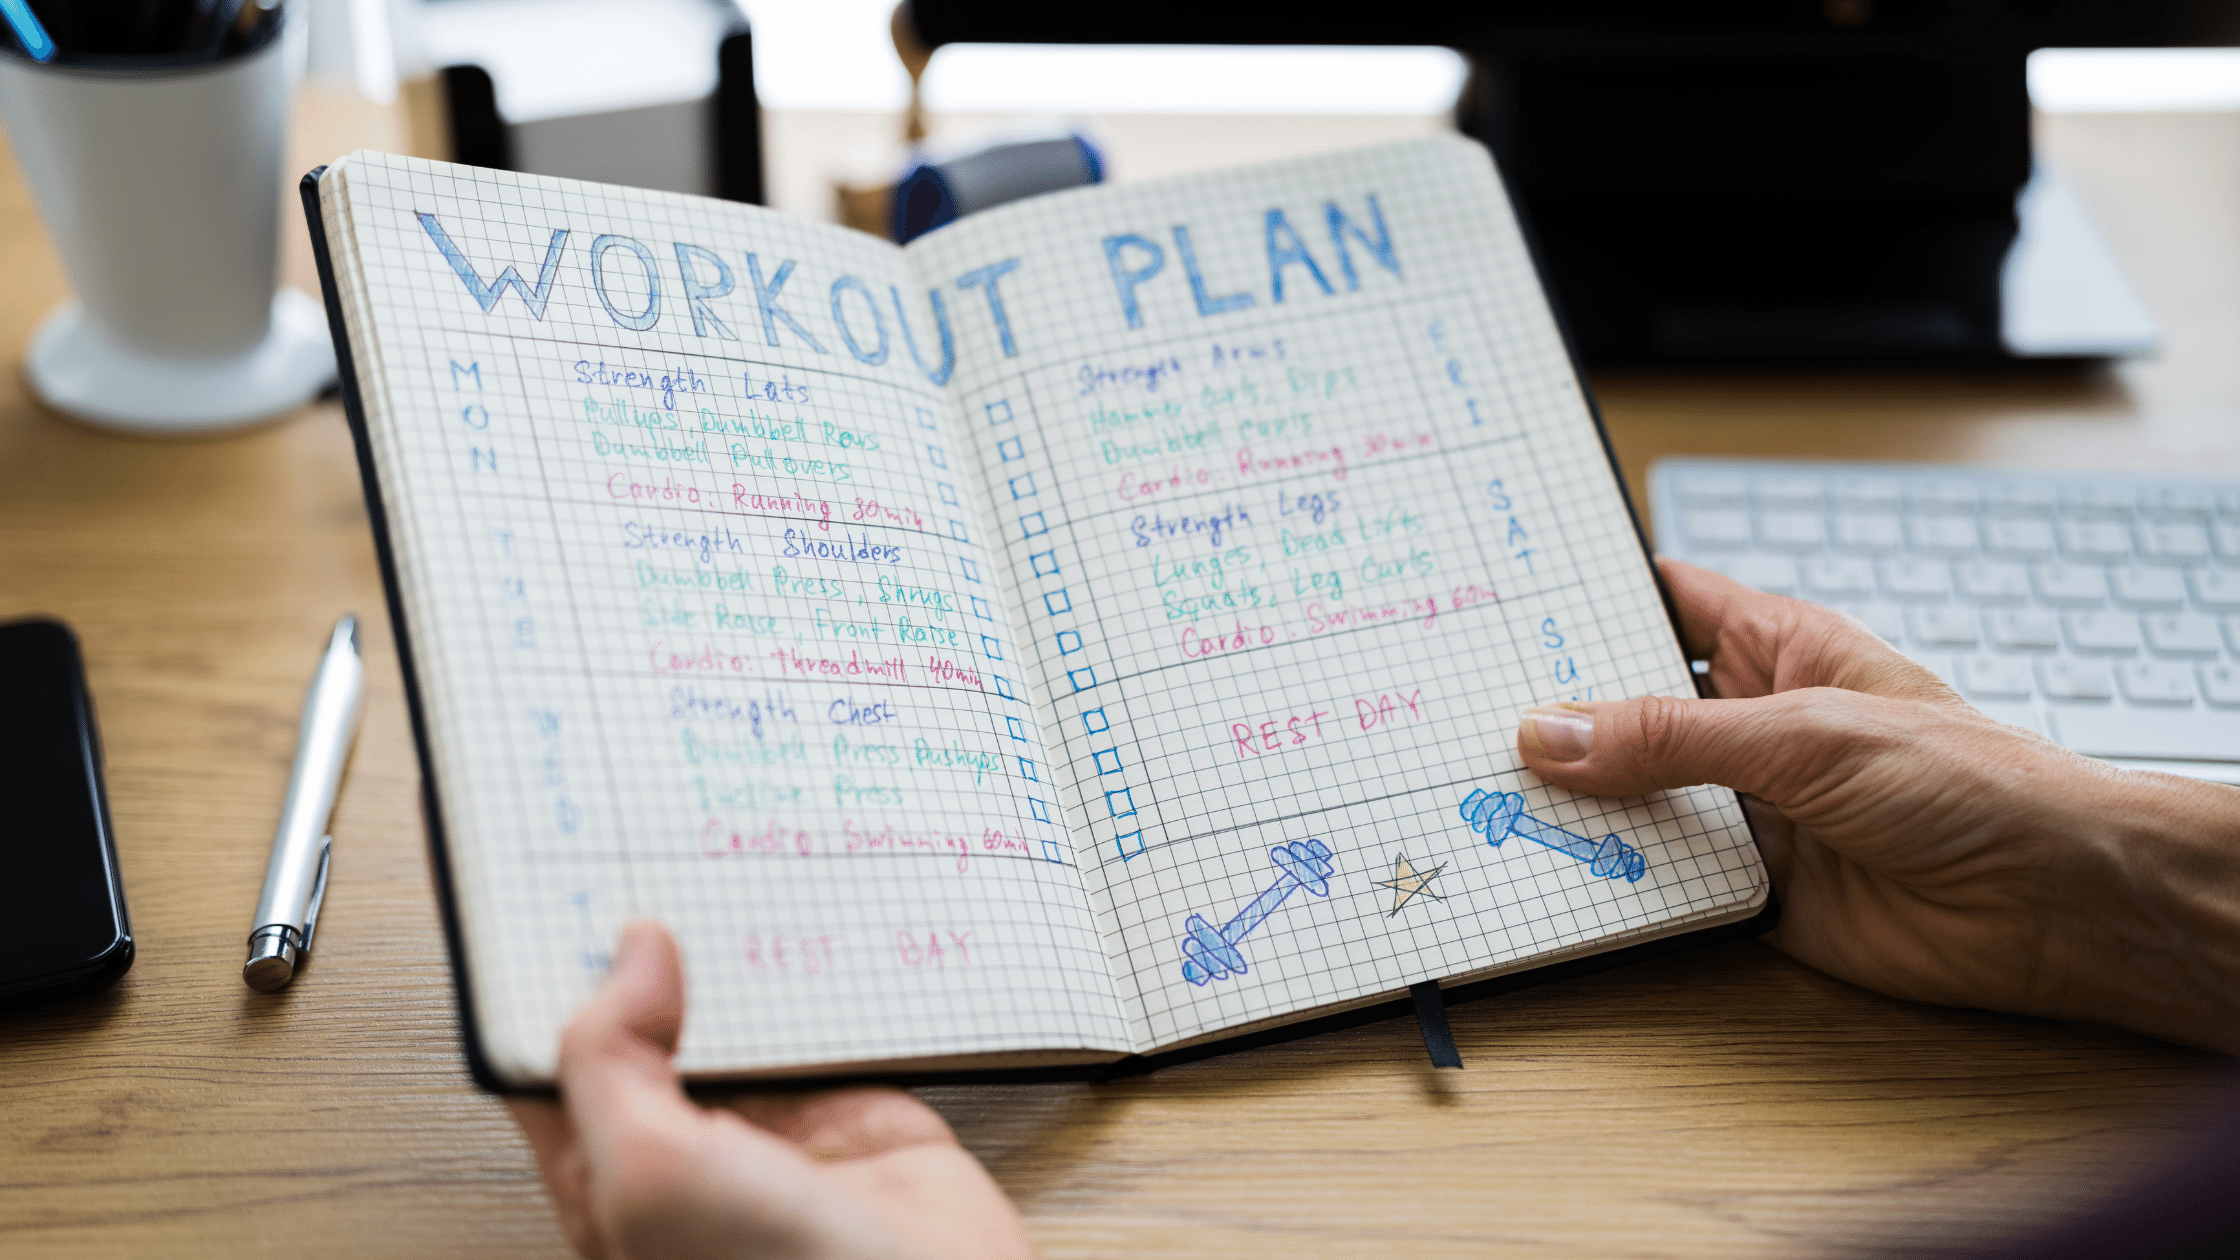 WORKOUT PLAN
MON
Strength Lats
Pullups, Dumbbell Rows
Dumbbell Pullovers
Cardio: Running 30min
TUE
Strength Shoulders
Dumbbell Press, Shrugs
Side Raise, Front Raise
Cardio: threadmill 40min
WED
Strength Chest
Dumbbell Press, Pushups
Incline Press
Cardio: Swimming 60min
REST DAY
FRI
Strength Arms
Hammer Curls, Dips
Dumbbell Curls
Cardio: Running 30min
SAT
Strength Legs
Lunges, Dead Lifts
Squats, Leg Curls
Cardio: Swimming 60m
SU
REST DAY